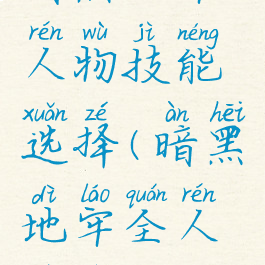 rén wù jì néng
人物技能
xuǎn zé àn hēi
选择(暗黑
dì láo quán rén
地牢全人